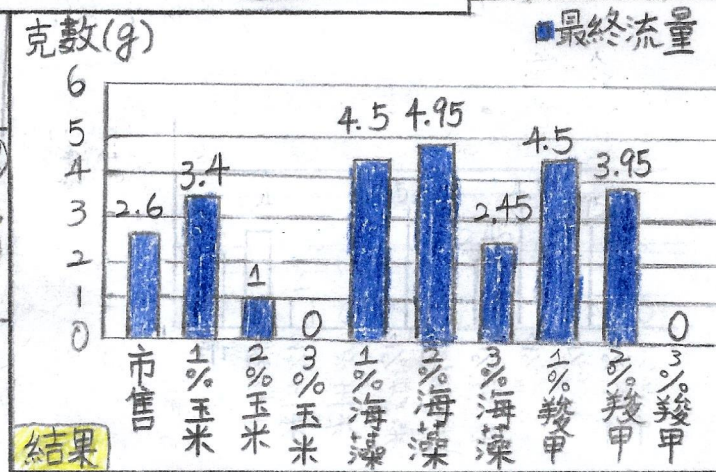 克數(g)
最終流量
6
5
4
3
2
1
0
2.6
3.4
1
0
4.5
4.95
2.45
4.5
3.95
0
市售
1%玉米
2%玉米
3%玉米
1%海藻
2%海藻
3%海藻
1%羧甲
2%羧甲
3%羧甲
結果